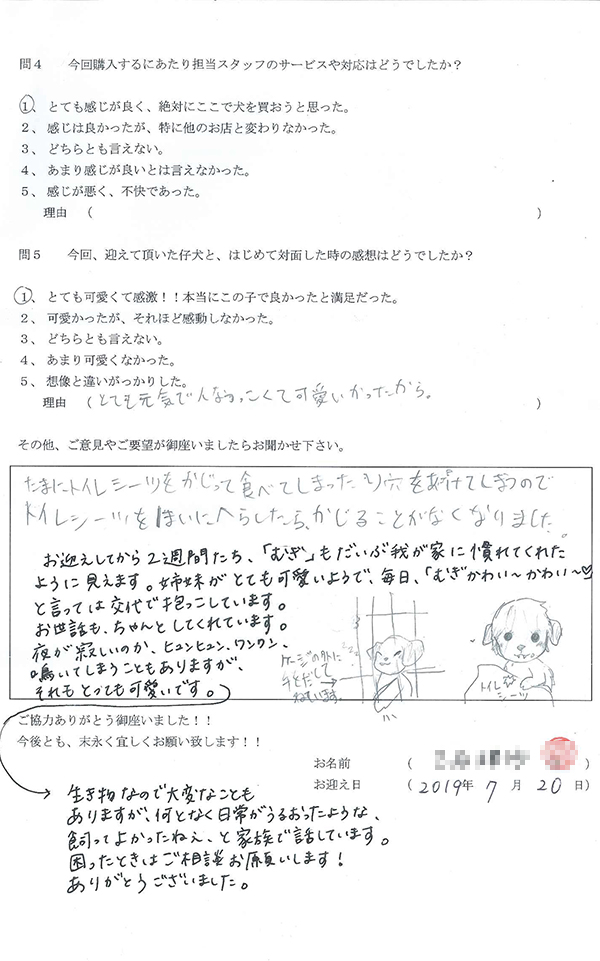 問４　今回購入するにあたり担当スタッフのサービスや対応はどうでしたか？
１、とても感じが良く、絶対にここで犬を買おうと思った。
２、感じは良かったが、特に他のお店と変わりなかった。
３、どちらとも言えない。
４、あまり感じが良いとは言えなかった。
５、感じが悪く、不快であった。
理由　（　　　）
問５　今回、迎えて頂いた仔犬と、はじめて対面した時の感想はどうでしたか？
１、とても可愛くて感激！！本当にこの子で良かったと満足だった。
２、可愛かったが、それほど感動しなかった。
３、どちらとも言えない。
４、あまり可愛くなかった。
５、想像と違いがっかりした。
理由　（とても元気で人なつっこくて可愛いかったから。　）
その他、ご意見やご要望が御座いましたらお聞かせ下さい。
たまにトイレシーツをかじって食べてしまったり穴をあけてしまうので
トイレシーツを1まいにへらしたら、かじることがなくなりました。
お迎えしてから2週間たち、「むぎ」もだいぶ我が家に慣れてくれた
ように見えます。姉妹がとても可愛いようで、毎日、「むぎかわい～かわい～♡
と言っては交代で抱っこしています。
お世話も、ちゃんとしてくれています。
夜が寂しいのか、ヒュンヒュン、ワンワン、
鳴いてしまうこともありますが、
それもとっても可愛いです。
ケージの外に
手をだして
ねています。
トイレ
シーツ
ご協力ありがとう御座いました！！
今後とも、末永く宜しくお願い致します！！
お名前　（　　　）
お迎え日　（2019年 7 月 20 日）
生き物なので大変なことも
ありますが、何となく日常がうるおったような、
飼ってよかったねぇ、と家族で話しています。
困ったときはご相談お願いします！
ありがとうございました。